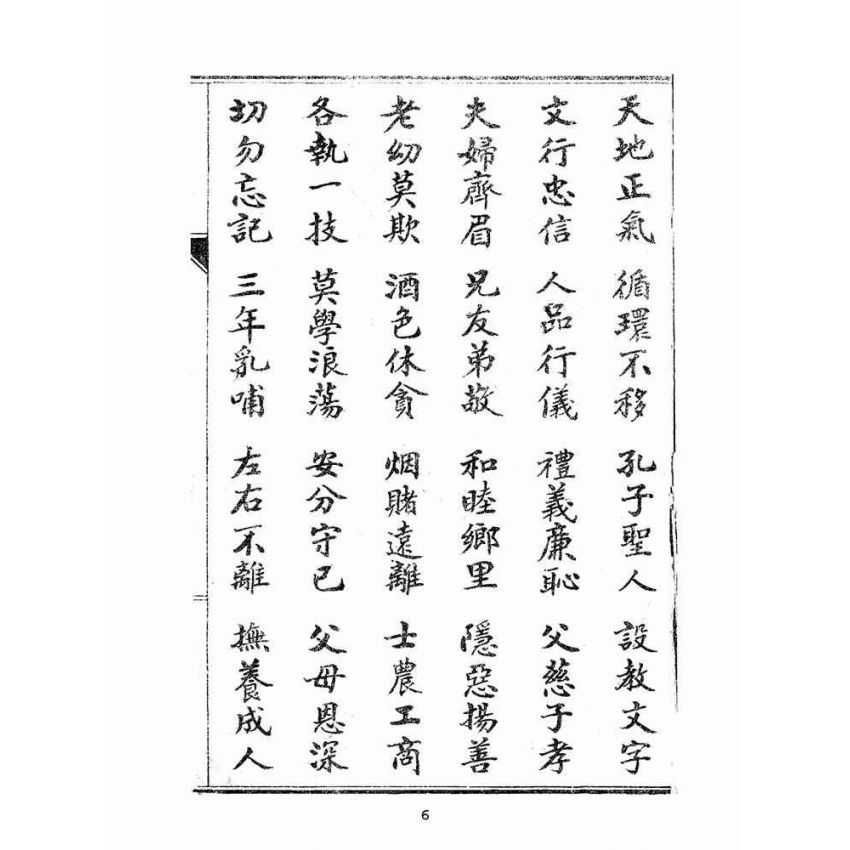 天地正氣 循環不移 孔子聖人 設教文字
文行忠信 人品行儀 禮義廉恥 父慈子孝
夫婦齊眉 兄友弟敬 和睦鄉里 隱惡揚善
老幼莫欺 酒色休貪 烟賭遠離 士農工商
各執一技 莫學浪蕩 安分守己 父母恩深
切勿忘記 三年乳哺 左右不離 撫養成人
6